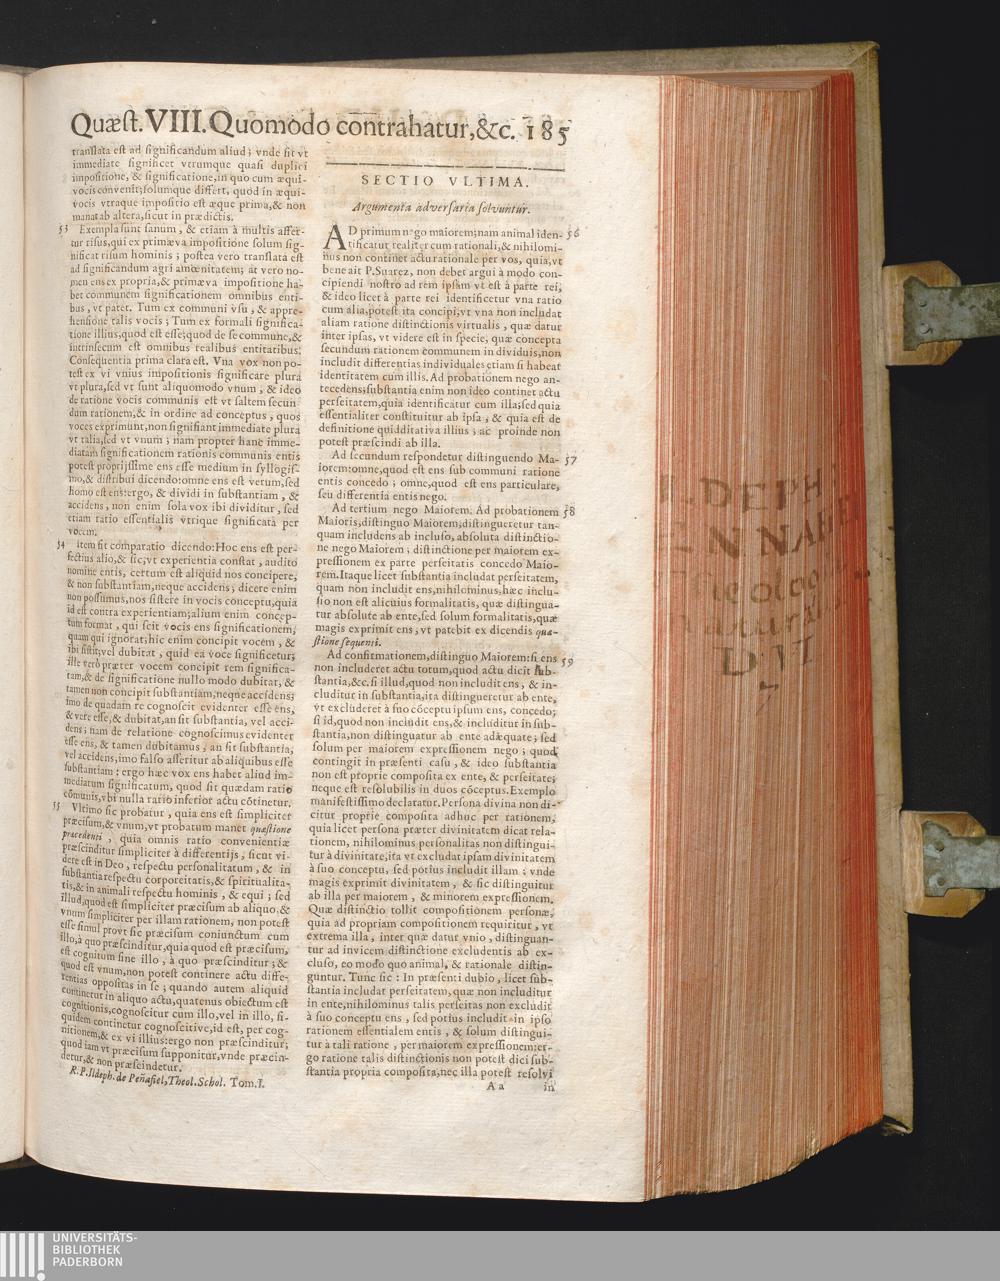 Quæſt. VIII. Quomodo contrahatur, &c. 185
tranſlata eſt ad ſignificandum aliud; vnde fit vt
immediate ſignificet vtrumque quaſi duplici
impoſitione, & ſignificatione, in quo cum æqui-
vocis convenit; ſolumque differt, quòd in æqui-
vocis vtraque impoſitio eſt æque prima, & non
manat ab altera, ſicut in prædictis.
53 Exempla ſunt ſanum, & etiam à multis affer-
tur riſus, qui ex primæva impoſitione ſolum ſig-
nificat riſum hominis; poſtea vero tranſlata eſt
ad ſignificandum agri amœnitatem; at vero no-
men ens ex propria, & primæva impoſitione ha-
bet communem ſignificationem omnibus enti-
bus, vt patet. Tum ex communi vſu, & appre-
henſione talis vocis; Tum ex formali ſignifica-
tione illius, quod eſt eſſe; quod de ſe commune, &
intrinſecum eſt omnibus realibus entitatibus.
Conſequentia prima clara eſt. Vna vox non po-
teſt ex vi vnius impoſitionis ſignificare plura
vt plura, ſed vt ſunt aliquomodo vnum, & ideo
de ratione vocis communis eſt vt ſaltem ſecun
dum rationem, & in ordine ad conceptus, quos
voces exprimunt, non ſignifiant immediate plura
vt talia, ſed vt vnum; nam propter hanc imme-
diatam ſignificationem rationis communis entis
poteſt propriſſime ens eſſe medium in ſyllogiſ-
mo, & diſtribui dicendo: omne ens eſt verum, ſed
homo eſt ens: ergo, & dividi in ſubſtantiam, &
accidens, non enim ſola vox ibi dividitur, ſed
etiam ratio eſſentialis vtrique ſignificata per
vocem.
54 Item fit comparatio dicendo: Hoc ens eſt per-
fectius alio, & ſic, vt experientia conſtat, audito
nomine entis, certum eſt aliquid nos concipere,
& non ſubſtantiam, neque accidens; dicere enim
non poſſumus, nos ſiſtere in vocis conceptu, quia
id eſt contra experientiam; alium enim concep-
tum format, qui ſcit vocis ens ſignificationem,
quam qui ignorat; hic enim concipit vocem, &
ibi ſiſtit, vel dubitat, quid ea voce ſignificetur;
ille vero præter vocem concipit rem ſignifica-
tam, & de ſignificatione nullo modo dubitat, &
tamen non concipit ſubſtantiam, neque accidens;
imo de quadam re cognoſcit evidenter eſſe ens,
& vere eſſe, & dubitat, an ſit ſubſtantia, vel acci-
dens; nam de relatione cognoſcimus evidenter
eſſe ens, & tamen dubitamus, an ſit ſubſtantia,
vel accidens, imo falſo aſſeritur ab aliquibus eſſe
ſubſtantiam: ergo hæc vox ens habet aliud im-
mediatum ſignificatum, quod ſit quædam ratio
cōmunis, vbi nulla ratio inferior actu cōtinetur.
55 Vltimo ſic probatur, quia ens eſt ſimpliciter
præciſum, & vnum, vt probatum manet quæſtione
præcedenti, quia omnis ratio convenientiæ
præſcinditur ſimpliciter à differentijs, ſicut vi-
dere eſt in Deo, reſpectu perſonalitatum, & in
ſubſtantia reſpectu corporeitatis, & ſpiritualita-
tis, & in animali reſpectu hominis, & equi; ſed
illud, quod eſt ſimpliciter præciſum ab aliquo, &
vnum ſimpliciter per illam rationem, non poteſt
eſſe ſimul provt ſic præciſum coniunctum cum
illo, à quo præſcinditur, quia quod eſt præciſum,
eſt cognitum ſine illo, à quo præſcinditur; &
quod eſt vnum, non poteſt continere actu diffe-
rentias oppoſitas in ſe; quando autem aliquid
continetur in aliquo actu, quatenus obiectum eſt
cognitionis, cognoſcitur cum illo, vel in illo, ſi-
quidem continetur cognoſcitive, id eſt, per cog-
nitionem, & ex vi illius: ergo non præſcinditur;
quod iam vt præciſum ſupponitur, vnde præcin-
detur, & non præſcindetur.
R. P. Ildeph. de Peñafiel, Theol. Schol. Tom. I.
SECTIO VLTIMA.
Argumenta adverſaria ſolvuntur.
AD primum nego maiorem; nam animal iden- 56
tificatur realiter cum rationali, & nihilomi-
nus non continet actu rationale per vos, quia, vt
bene ait P. Suarez, non debet argui à modo con-
cipiendi noſtro ad rem ipſam vt eſt à parte rei,
& ideo licet à parte rei identificetur vna ratio
cum alia, poteſt ita concipi, vt vna non includat
aliam ratione diſtinctionis virtualis, quæ datur
inter ipſas, vt videre eſt in ſpecie, quæ concepta
ſecundum rationem communem in dividuis, non
includit differentias individuales etiam ſi habeat
identitatem cum illis. Ad probationem nego an-
tecedens; ſubſtantia enim non ideo continet actu
perſeitatem, quia identificatur cum illa; ſed quia
eſſentialiter conſtituitur ab ipſa, & quia eſt de
definitione quidditativa illius; ac proinde non
poteſt præſcindi ab illa.
Ad ſecundum reſpondetur diſtinguendo Ma- 57
iorem: omne, quod eſt ens ſub communi ratione
entis concedo; omne, quod eſt ens particulare,
ſeu differentia entis nego.
Ad tertium nego Maiorem. Ad probationem 58
Maioris, diſtinguo Maiorem, diſtingueretur tan-
quam includens ab incluſo, abſoluta diſtinctio-
ne nego Maiorem; diſtinctione per maiorem ex-
preſſionem ex parte perſeitatis concedo Maio-
rem. Itaque licet ſubſtantia includat perſeitatem,
quam non includit ens, nihilominus, hæc inclu-
ſio non eſt alicuius formalitatis, quæ diſtingua-
tur abſolute ab ente, ſed ſolum formalitatis, quæ
magis exprimit ens, vt patebit ex dicendis quæ-
ſtione ſequenti.
Ad confirmationem, diſtinguo Maiorem: ſi ens 59
non includeret actu totum, quod actu dicit ſub-
ſtantia, &c. ſi illud, quod non includit ens, & in-
cluditur in ſubſtantia, ita diſtingueretur ab ente,
vt excluderet à ſuo cōceptu ipſum ens, concedo;
ſi id, quod non includit ens, & includitur in ſub-
ſtantia, non diſtinguatur ab ente adæquate; ſed
ſolum per maiorem expreſſionem nego; quod
contingit in præſenti caſu, & ideo ſubſtantia
non eſt proprie compoſita ex ente, & perſeitate;
neque eſt reſolubilis in duos cōceptus. Exemplo
manifeſtiſſimo declaratur. Perſona divina non di-
citur proprie compoſita adhuc per rationem,
quia licet perſona præter divinitatem dicat rela-
tionem, nihilominus perſonalitas non diſtingui-
tur à divinitate, ita vt excludat ipſam divinitatem
à ſuo conceptu, ſed potius includit illam: vnde
magis exprimit divinitatem, & ſic diſtinguitur
ab illa per maiorem, & minorem expreſſionem.
Quæ diſtinctio tollit compoſitionem perſonæ,
quia ad propriam compoſitionem requiritur, vt
extrema illa, inter quæ datur vnio, diſtinguan-
tur ad invicem diſtinctione excludentis ab ex-
cluſo, eo modo quo animal, & rationale diſtin-
guntur. Tunc ſic: In præſenti dubio, licet ſub-
ſtantia includat perſeitatem, quæ non includitur
in ente, nihilominus talis perſeitas non excludit
à ſuo conceptu ens, ſed potius includit in ipſo
rationem eſſentialem entis, & ſolum diſtingui-
tur à tali ratione, per maiorem expreſſionem: er-
go ratione talis diſtinctionis non poteſt dici ſub-
ſtantia propria compoſita, nec illa poteſt reſolvi
A a in
DEPH
D VI
UNIVERSITÄTS-
BIBLIOTHEK
PADERBORN